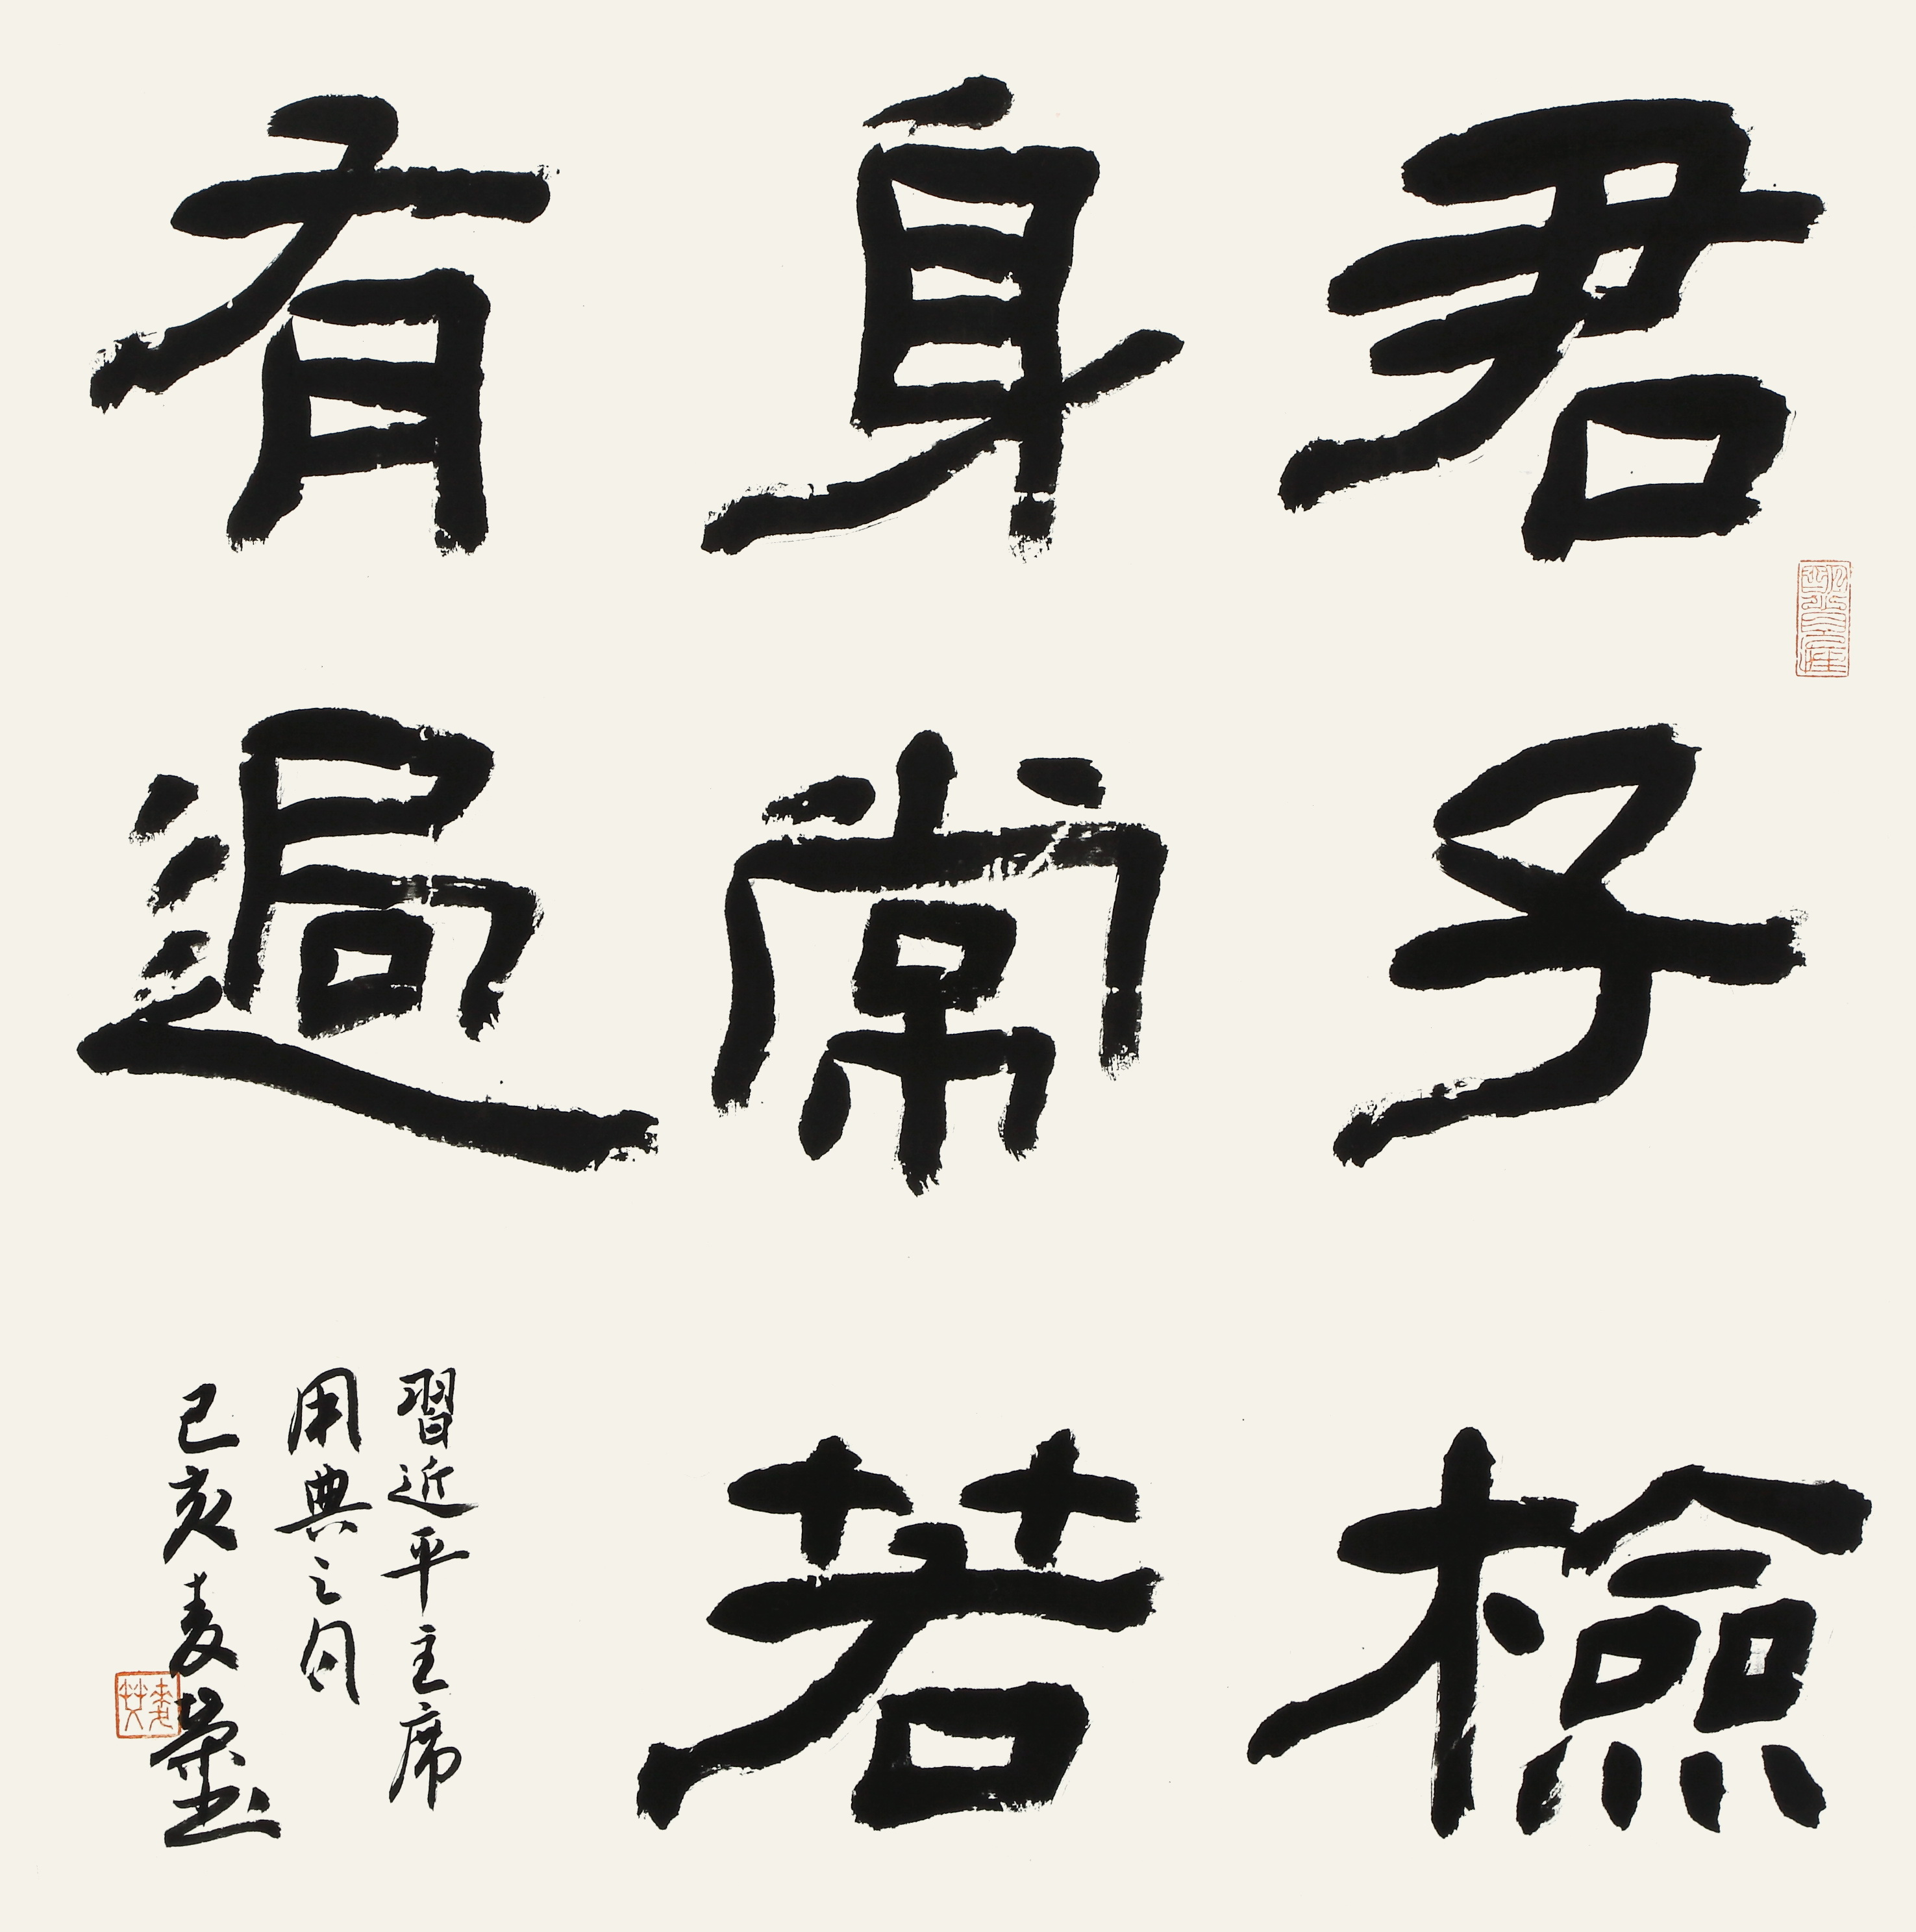 君子檢
身常若
有過
習近平主席
用典之句
己亥麦榮書